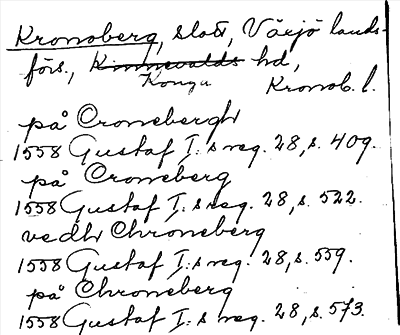 Kronoberg, slott, Växjö lands-
förs., Kinnevalds hd,
Konga
Kronob. l.
på Cronebergh
1558 Gustaf I:s reg. 28, s. 409.
på Croneberg
1558 Gustaf I:s reg. 28, s. 522.
vedh Chroneberg
1558 Gustaf I:s reg. 28, s. 559.
på Chroneberg
1558 Gustaf I:s reg. 28, s. 573.